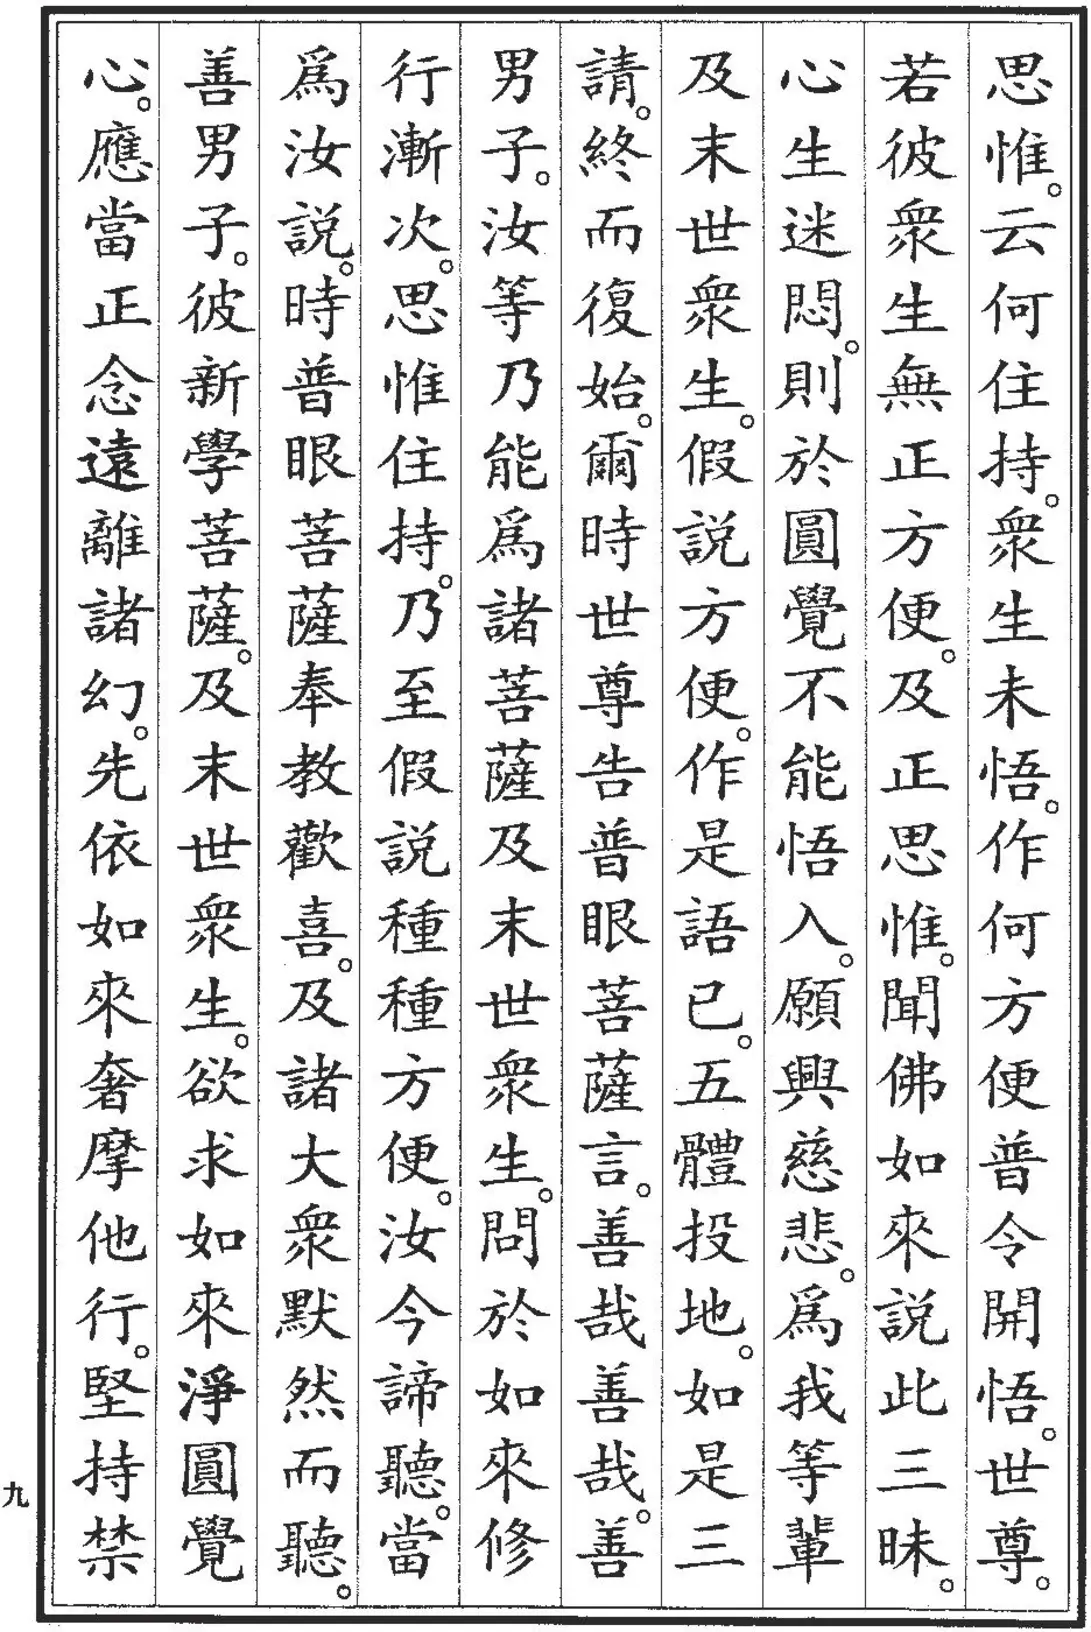 思惟。云何住持。衆生未悟。作何方便普令開悟。世尊。
若彼衆生無正方便。及正思惟。聞佛如來説此三昧。
心生迷悶。則於圓覺不能悟入。願興慈悲。爲我等輩
及末世衆生。假説方便。作是語已。五體投地。如是三
請。終而復始。爾時世尊告普眼菩薩言。善哉善哉。善
男子。汝等乃能爲諸菩薩及末世衆生。問於如來修
行漸次。思惟住持。乃至假説種種方便。汝今諦聽。當
爲汝説。時普眼菩薩奉教歡喜。及諸大衆默然而聽。
善男子。彼新學菩薩。及末世衆生。欲求如來淨圓覺
心。應當正念遠離諸幻。先依如來奢摩他行。堅持禁
九